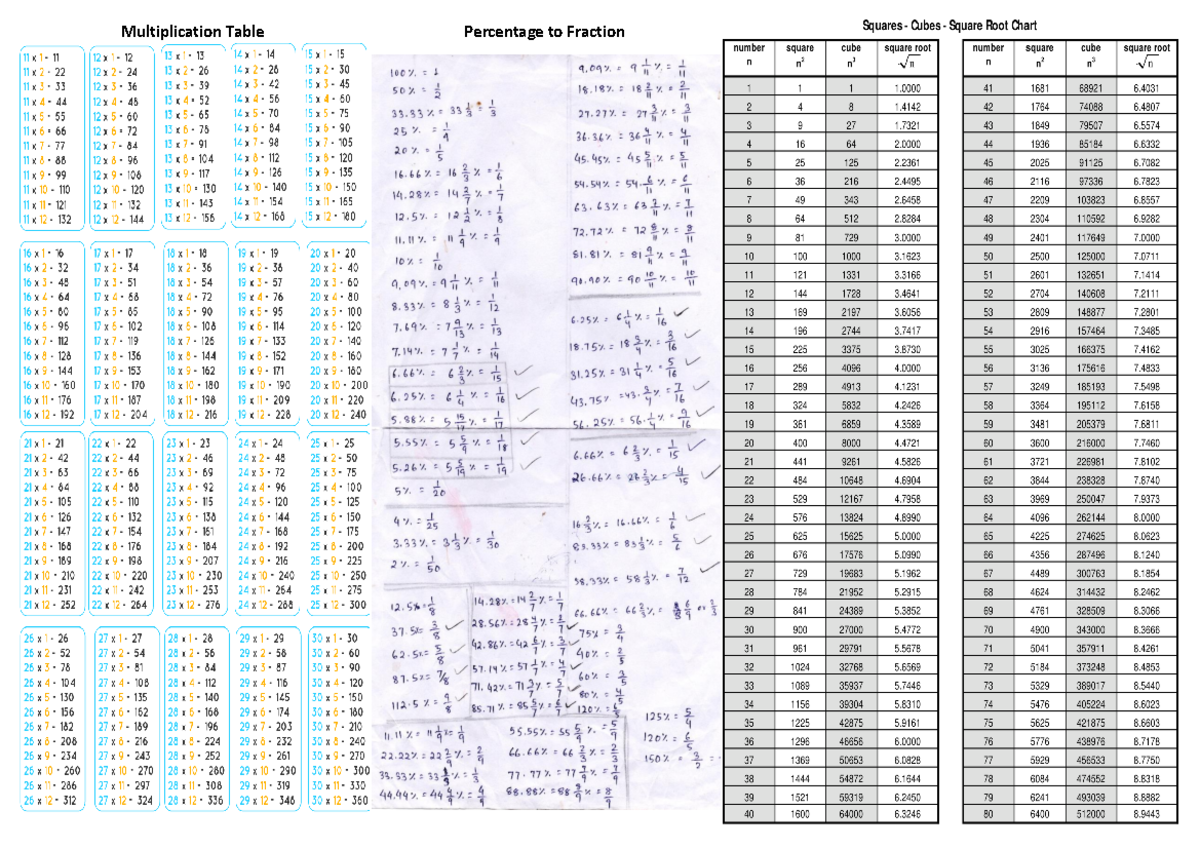 Multiplication Table
11 x 1 - 11
11 x 2 - 22
11 x 3 - 33
11 x 4 - 44
11 x 5 - 55
11 x 6 - 66
11 x 7 - 77
11 x 8 - 88
11 x 9 - 99
11 x 10 - 110
11 x 11 - 121
11 x 12 - 132
12 x 1 - 12
12 x 2 - 24
12 x 3 - 36
12 x 4 - 48
12 x 5 - 60
12 x 6 - 72
12 x 7 - 84
12 x 8 - 96
12 x 9 - 108
12 x 10 - 120
12 x 11 - 132
12 x 12 - 144
13 x 1 - 13
13 x 2 - 26
13 x 3 - 39
13 x 4 - 52
13 x 5 - 65
13 x 6 - 78
13 x 7 - 91
13 x 8 - 104
13 x 9 - 117
13 x 10 - 130
13 x 11 - 143
13 x 12 - 156
14 x 1 - 14
14 x 2 - 28
14 x 3 - 42
14 x 4 - 56
14 x 5 - 70
14 x 6 - 84
14 x 7 - 98
14 x 8 - 112
14 x 9 - 126
14 x 10 - 140
14 x 11 - 154
14 x 12 - 168
15 x 1 - 15
15 x 2 - 30
15 x 3 - 45
15 x 4 - 60
15 x 5 - 75
15 x 6 - 90
15 x 7 - 105
15 x 8 - 120
15 x 9 - 135
15 x 10 - 150
15 x 11 - 165
15 x 12 - 180
16 x 1 - 16
16 x 2 - 32
16 x 3 - 48
16 x 4 - 64
16 x 5 - 80
16 x 6 - 96
16 x 7 - 112
16 x 8 - 128
16 x 9 - 144
16 x 10 - 160
16 x 11 - 176
16 x 12 - 192
17 x 1 - 17
17 x 2 - 34
17 x 3 - 51
17 x 4 - 68
17 x 5 - 85
17 x 6 - 102
17 x 7 - 119
17 x 8 - 136
17 x 9 - 153
17 x 10 - 170
17 x 11 - 187
17 x 12 - 204
18 x 1 - 18
18 x 2 - 36
18 x 3 - 54
18 x 4 - 72
18 x 5 - 90
18 x 6 - 108
18 x 7 - 126
18 x 8 - 144
18 x 9 - 162
18 x 10 - 180
18 x 11 - 198
18 x 12 - 216
19 x 1 - 19
19 x 2 - 38
19 x 3 - 57
19 x 4 - 76
19 x 5 - 95
19 x 6 - 114
19 x 7 - 133
19 x 8 - 152
19 x 9 - 171
19 x 10 - 190
19 x 11 - 209
19 x 12 - 228
20 x 1 - 20
20 x 2 - 40
20 x 3 - 60
20 x 4 - 80
20 x 5 - 100
20 x 6 - 120
20 x 7 - 140
20 x 8 - 160
20 x 9 - 180
20 x 10 - 200
20 x 11 - 220
20 x 12 - 240
21 x 1 - 21
21 x 2 - 42
21 x 3 - 63
21 x 4 - 84
21 x 5 - 105
21 x 6 - 126
21 x 7 - 147
21 x 8 - 168
21 x 9 - 189
21 x 10 - 210
21 x 11 - 231
21 x 12 - 252
22 x 1 - 22
22 x 2 - 44
22 x 3 - 66
22 x 4 - 88
22 x 5 - 110
22 x 6 - 132
22 x 7 - 154
22 x 8 - 176
22 x 9 - 198
22 x 10 - 220
22 x 11 - 242
22 x 12 - 264
23 x 1 - 23
23 x 2 - 46
23 x 3 - 69
23 x 4 - 92
23 x 5 - 115
23 x 6 - 138
23 x 7 - 161
23 x 8 - 184
23 x 9 - 207
23 x 10 - 230
23 x 11 - 253
23 x 12 - 276
24 x 1 - 24
24 x 2 - 48
24 x 3 - 72
24 x 4 - 96
24 x 5 - 120
24 x 6 - 144
24 x 7 - 168
24 x 8 - 192
24 x 9 - 216
24 x 10 - 240
24 x 11 - 264
24 x 12 - 288
25 x 1 - 25
25 x 2 - 50
25 x 3 - 75
25 x 4 - 100
25 x 5 - 125
25 x 6 - 150
25 x 7 - 175
25 x 8 - 200
25 x 9 - 225
25 x 10 - 250
25 x 11 - 275
25 x 12 - 300
26 x 1 - 26
26 x 2 - 52
26 x 3 - 78
26 x 4 - 104
26 x 5 - 130
26 x 6 - 156
26 x 7 - 182
26 x 8 - 208
26 x 9 - 234
26 x 10 - 260
26 x 11 - 286
26 x 12 - 312
27 x 1 - 27
27 x 2 - 54
27 x 3 - 81
27 x 4 - 108
27 x 5 - 135
27 x 6 - 162
27 x 7 - 189
27 x 8 - 216
27 x 9 - 243
27 x 10 - 270
27 x 11 - 297
27 x 12 - 324
28 x 1 - 28
28 x 2 - 56
28 x 3 - 84
28 x 4 - 112
28 x 5 - 140
28 x 6 - 168
28 x 7 - 196
28 x 8 - 224
28 x 9 - 252
28 x 10 - 280
28 x 11 - 308
28 x 12 - 336
29 x 1 - 29
29 x 2 - 58
29 x 3 - 87
29 x 4 - 116
29 x 5 - 145
29 x 6 - 174
29 x 7 - 203
29 x 8 - 232
29 x 9 - 261
29 x 10 - 290
29 x 11 - 319
29 x 12 - 348
30 x 1 - 30
30 x 2 - 60
30 x 3 - 90
30 x 4 - 120
30 x 5 - 150
30 x 6 - 180
30 x 7 - 210
30 x 8 - 240
30 x 9 - 270
30 x 10 - 300
30 x 11 - 330
30 x 12 - 360
Percentage to Fraction
100% = 1
50% = 1/2
33.33% = 33 1/3 = 1/3
25% = 1/4
20% = 1/5
16.66% = 16 2/3 % = 1/6
14.28% = 14 2/7 % = 1/7
12.5% = 12 1/2 % = 1/8
11.11% = 11 1/9 % = 1/9
10% = 1/10
9.09% = 9 1/11 % = 1/11
8.33% = 8 1/3 % = 1/12
7.69% = 7 9/13 % = 1/13
7.14% = 7 1/7 % = 1/14
6.66% = 6 2/3 % = 1/15
6.25% = 6 1/4 % = 1/16
5.88% = 5 15/17 % = 1/17
5.55% = 5 5/9 % = 1/18
5.26% = 5 5/19 % = 1/19
5% = 1/20
4% = 1/25
3.33% = 3 1/3 % = 1/30
2% = 1/50
9.09% = 9 1/11 % = 1/11
18.18% = 18 2/11 % = 2/11
27.27% = 27 3/11 % = 3/11
36.36% = 36 4/11 % = 4/11
45.45% = 45 5/11 % = 5/11
54.54% = 54 6/11 % = 6/11
63.63% = 63 7/11 % = 7/11
72.72% = 72 8/11 % = 8/11
81.81% = 81 9/11 % = 9/11
90.90% = 90 10/11 % = 10/11
6.25% = 6 1/4 % = 1/16
18.75% = 18 3/4 % = 3/16
31.25% = 31 1/4 % = 5/16
43.75% = 43 3/4 % = 7/16
56.25% = 56 1/4 % = 9/16
6.66% = 6 2/3 % = 1/15
26.66% = 26 2/3 % = 4/15
16 2/3 % = 16.66% = 1/6
83.33% = 83 1/3 % = 5/6
58.33% = 58 1/3 % = 7/12
12.5% = 1/8
37.5% = 3/8
62.5% = 5/8
87.5% = 7/8
112.5% = 9/8
14.28% = 14 2/7 % = 1/7
28.56% = 28 4/7 % = 2/7
42.86% = 42 6/7 % = 3/7
57.14% = 57 1/7 % = 4/7
71.42% = 71 3/7 % = 5/7
85.71% = 85 5/7 % = 6/7
66.66% = 66 2/3 % = 6/9 or 2/3
75% = 3/4
40% = 2/5
60% = 3/5
80% = 4/5
120% = 6/5
11.11% = 11 1/9 % = 1/9
22.22% = 22 2/9 % = 2/9
33.33% = 33 1/3 % = 1/3
44.44% = 44 4/9 % = 4/9
55.55% = 55 5/9 % = 5/9
66.66% = 66 2/3 % = 2/3
77.77% = 77 7/9 % = 7/9
88.88% = 88 8/9 % = 8/9
125% = 5/4
120% = 6/5
150% = 3/2
Squares - Cubes - Square Root Chart
number square cube square root
n n² n³ √n
1 1 1 1.0000
2 4 8 1.4142
3 9 27 1.7321
4 16 64 2.0000
5 25 125 2.2361
6 36 216 2.4495
7 49 343 2.6458
8 64 512 2.8284
9 81 729 3.0000
10 100 1000 3.1623
11 121 1331 3.3166
12 144 1728 3.4641
13 169 2197 3.6056
14 196 2744 3.7417
15 225 3375 3.8730
16 256 4096 4.0000
17 289 4913 4.1231
18 324 5832 4.2426
19 361 6859 4.3589
20 400 8000 4.4721
21 441 9261 4.5826
22 484 10648 4.6904
23 529 12167 4.7958
24 576 13824 4.8990
25 625 15625 5.0000
26 676 17576 5.0990
27 729 19683 5.1962
28 784 21952 5.2915
29 841 24389 5.3852
30 900 27000 5.4772
31 961 29791 5.5678
32 1024 32768 5.6569
33 1089 35937 5.7446
34 1156 39304 5.8310
35 1225 42875 5.9161
36 1296 46656 6.0000
37 1369 50653 6.0828
38 1444 54872 6.1644
39 1521 59319 6.2450
40 1600 64000 6.3246
number square cube square root
n n² n³ √n
41 1681 68921 6.4031
42 1764 74088 6.4807
43 1849 79507 6.5574
44 1936 85184 6.6332
45 2025 91125 6.7082
46 2116 97336 6.7823
47 2209 103823 6.8557
48 2304 110592 6.9282
49 2401 117649 7.0000
50 2500 125000 7.0711
51 2601 132651 7.1414
52 2704 140608 7.2111
53 2809 148877 7.2801
54 2916 157464 7.3485
55 3025 166375 7.4162
56 3136 175616 7.4833
57 3249 185193 7.5498
58 3364 195112 7.6158
59 3481 205379 7.6811
60 3600 216000 7.7460
61 3721 226981 7.8102
62 3844 238328 7.8740
63 3969 250047 7.9373
64 4096 262144 8.0000
65 4225 274625 8.0623
66 4356 287496 8.1240
67 4489 300763 8.1854
68 4624 314432 8.2462
69 4761 328509 8.3066
70 4900 343000 8.3666
71 5041 357911 8.4261
72 5184 373248 8.4853
73 5329 389017 8.5440
74 5476 405224 8.6023
75 5625 421875 8.6603
76 5776 438976 8.7178
77 5929 456533 8.7750
78 6084 474552 8.8318
79 6241 493039 8.8882
80 6400 512000 8.9443